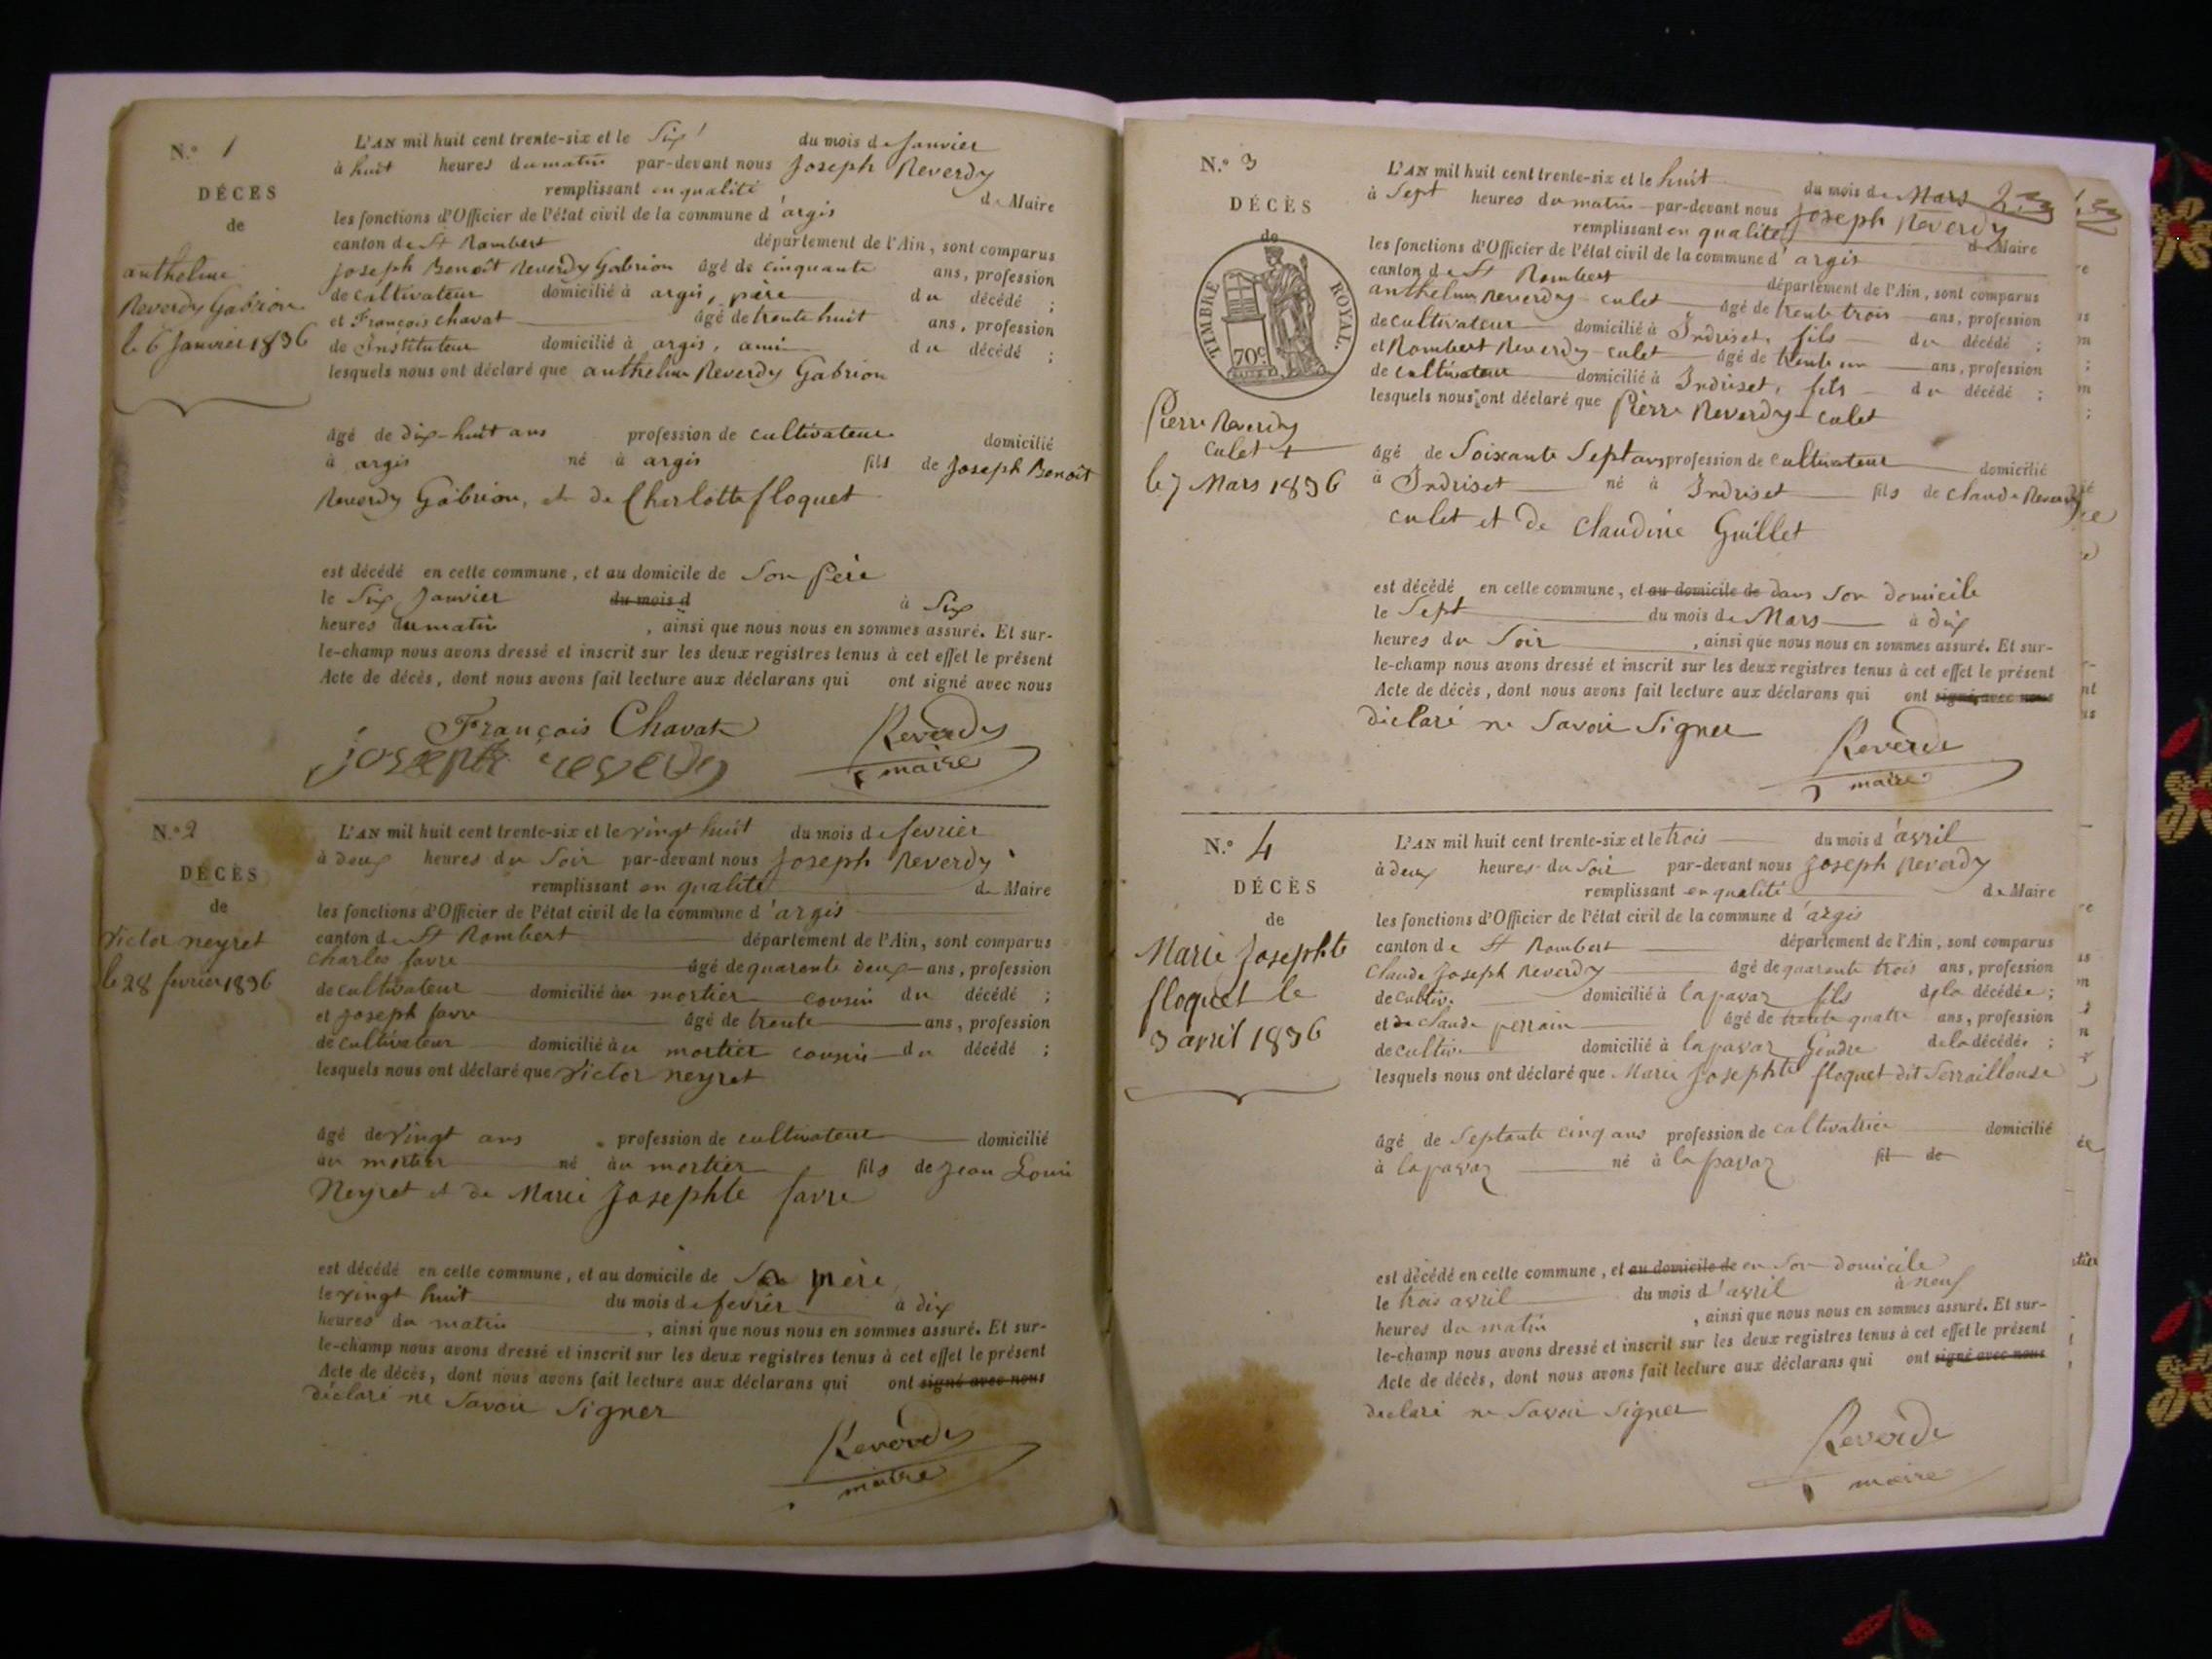 N.º 1
DÉCÈS
de
anthelme
Reverdy Gabrion
le 6 Janvier 1836
L'AN mil huit cent trente-six et le Six du mois de Janvier
à huit heures du matin par-devant nous Joseph Reverdy
remplissant en qualité de Maire
les fonctions d'Officier de l'état civil de la commune d'argis
canton de St Rambert département de l'Ain, sont comparus
Joseph Benoît Reverdy Gabrion âgé de cinquante ans, profession
de cultivateur domicilié à argis, père du décédé ;
et François Chavat âgé de trente huit ans, profession
de Instituteur domicilié à argis, ami du décédé ;
lesquels nous ont déclaré que anthelme Reverdy Gabrion
âgé de dix-huit ans profession de cultivateur domicilié
à argis né à argis fils de Joseph Benoît
Reverdy Gabrion, et de Cherlotte floquet
est décédé en celle commune, et au domicile de Son Père
le Six Janvier du mois d à Six
heures du matin , ainsi que nous nous en sommes assuré. Et sur-
le-champ nous avons dressé et inscrit sur les deux registres tenus à cet effet le présent
Acte de décès, dont nous avons fait lecture aux déclarans qui ont signé avec nous
François Chavat Reverdy
joseph reverdy maire
N.º 2
DÉCÈS
de
Victor neyret
le 28 fevrier 1836
L'AN mil huit cent trente-six et le vingt huit du mois de fevrier
à deux heures du Soir par-devant nous Joseph Reverdy
remplissant en qualité de Maire
les fonctions d'Officier de l'état civil de la commune d'argis
canton de St Rambert département de l'Ain, sont comparus
Charles favre âgé de quarante deux ans, profession
de cultivateur domicilié au mortier cousin du décédé ;
et Joseph favre âgé de trente ans, profession
de cultivateur domicilié au mortier cousin du décédé ;
lesquels nous ont déclaré que Victor neyret
âgé de vingt ans profession de cultivateur domicilié
au mortier né au mortier fils de Jean Louis
Neyret et de Marie Josephte favre
est décédé en celle commune, et au domicile de Sa mère
le vingt huit du mois de fevrier à dix
heures du matin , ainsi que nous nous en sommes assuré. Et sur-
le-champ nous avons dressé et inscrit sur les deux registres tenus à cet effet le présent
Acte de décès, dont nous avons fait lecture aux déclarans qui ont signé avec nous
déclaré ne Savoir Signer
Reverdy
maire
N.º 3
DÉCÈS
de
TIMBRE ROYAL.
70c
Pierre Reverdy
Culet
le 7 Mars 1836
L'AN mil huit cent trente-six et le huit du mois de Mars
à Sept heures du matin par-devant nous Joseph Reverdy
remplissant en qualité de Maire
les fonctions d'Officier de l'état civil de la commune d'argis
canton de St Rambert département de l'Ain, sont comparus
anthelme Reverdy culet âgé de trente trois ans, profession
de cultivateur domicilié à Indriset, fils du décédé ;
et Rambert Reverdy-culet âgé de trente un ans, profession
de cultivateur domicilié à Indriset, fils du décédé ;
lesquels nous ont déclaré que Pierre Reverdy-culet
âgé de Soixante Sept ans profession de cultivateur domicilié
à Indriset né à Indriset fils de claude Reverdy
culet et de Claudine Guillet
est décédé en celle commune, et au domicile de dans Son domicile
le Sept du mois de Mars à dix
heures du Soir , ainsi que nous nous en sommes assuré. Et sur-
le-champ nous avons dressé et inscrit sur les deux registres tenus à cet effet le présent
Acte de décès, dont nous avons fait lecture aux déclarans qui ont signé avec nous
déclaré ne Savoir Signer
Reverdy
maire
N.º 4
DÉCÈS
de
Marie Josephte
floquet le
3 avril 1836
L'AN mil huit cent trente-six et le trois du mois d'avril
à deux heures du Soir par-devant nous Joseph Reverdy
remplissant en qualité de Maire
les fonctions d'Officier de l'état civil de la commune d'argis
canton de St Rambert département de l'Ain, sont comparus
Claude Joseph Reverdy âgé de quarante trois ans, profession
de cultiv. domicilié à lapavaz fils de la décédée ;
et de Claude perrain âgé de trente quatre ans, profession
de cultiv. domicilié à lapavaz Gendre de la décédée ;
lesquels nous ont déclaré que Marie Josephte floquet dit Serraillouse
âgé de Septante cinq ans profession de cultivatrice domicilié
à lapavaz né à la pavaz fil de
est décédé en celle commune, et au domicile de en Son domicile
le trois avril du mois d'avril à neuf
heures du matin , ainsi que nous nous en sommes assuré. Et sur-
le-champ nous avons dressé et inscrit sur les deux registres tenus à cet effet le présent
Acte de décès, dont nous avons fait lecture aux déclarans qui ont signé avec nous
déclaré ne Savoir Signer
Reverdy
maire